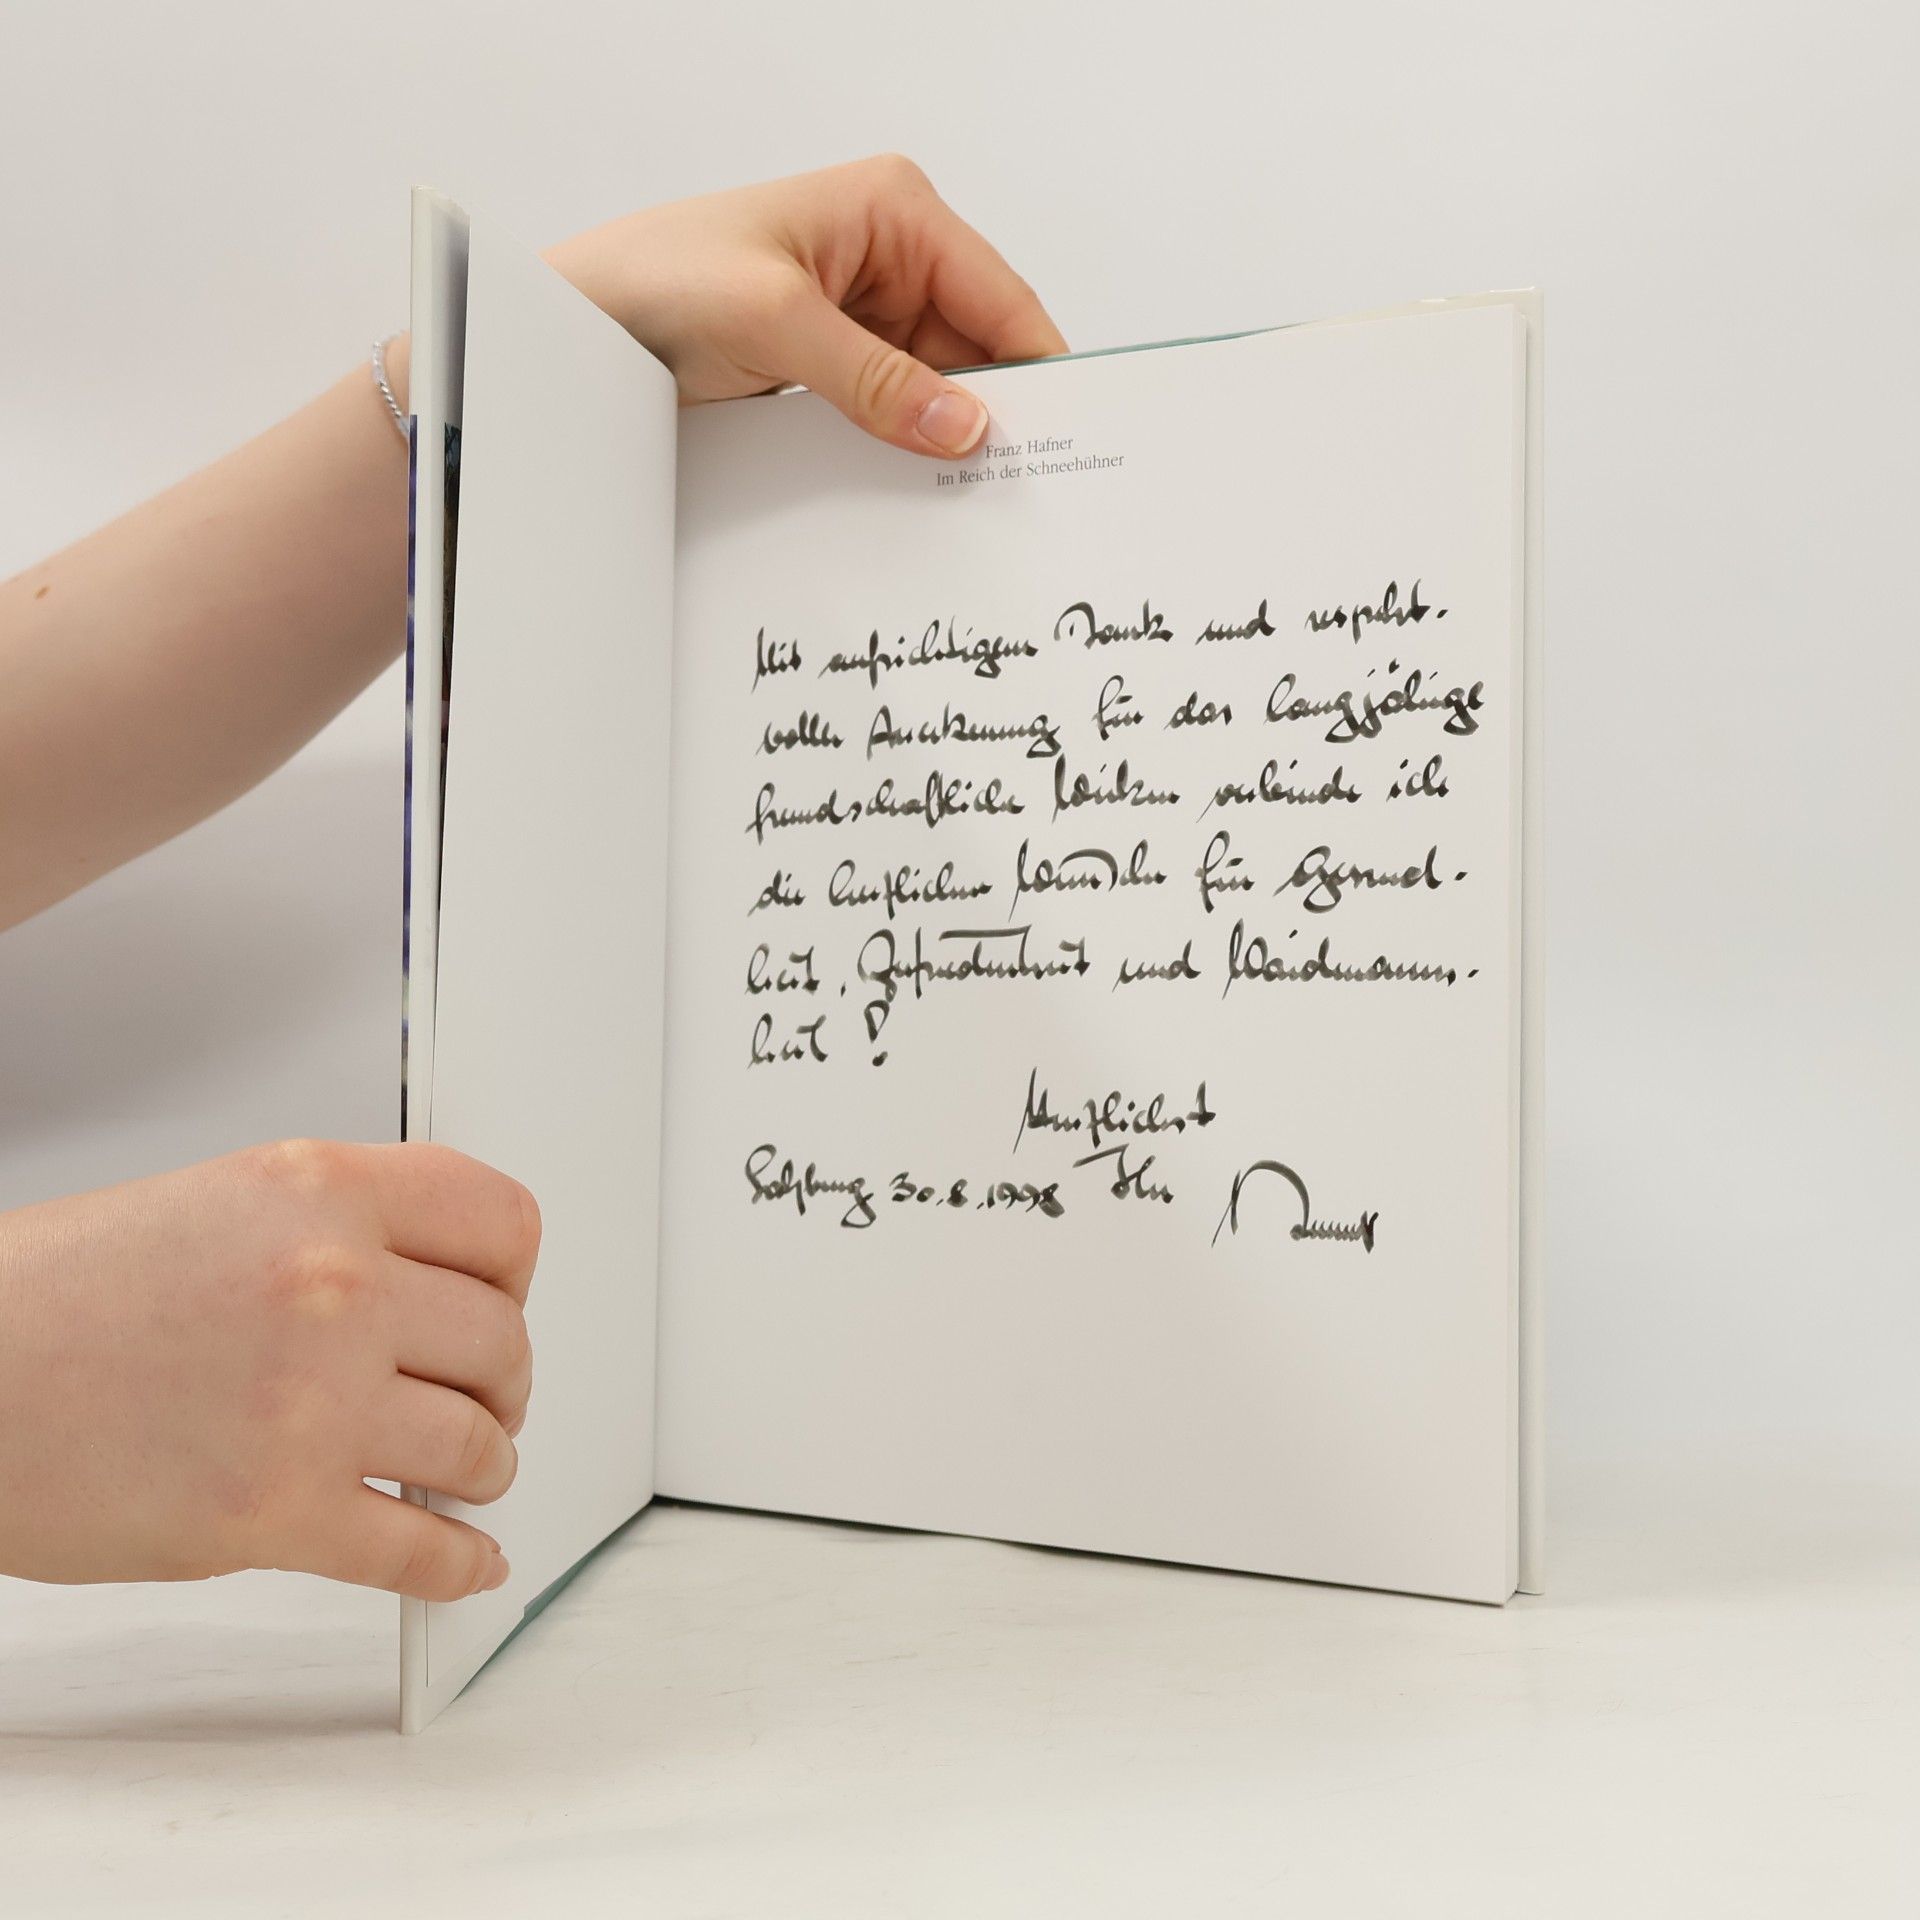 Franz Hafner
Im Reich der Schneehühner
Mit aufrichtigem Dank und respekt-
voller Anerkennung für das langjährige
freundschaftliche Wirken verbinde ich
die herzlichen Wünsche für Gesund-
heit, Zufriedenheit und Waidmanns-
heil!
Herzlichst
Salzburg 30.8.1998 Ihr